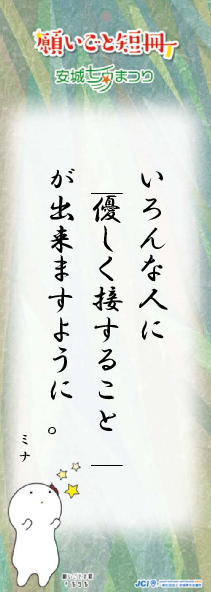 願いごと短冊
安城七夕まつり
いろんな人に
｜優しく接すること｜
が出来ますように。
ミナ
JCI